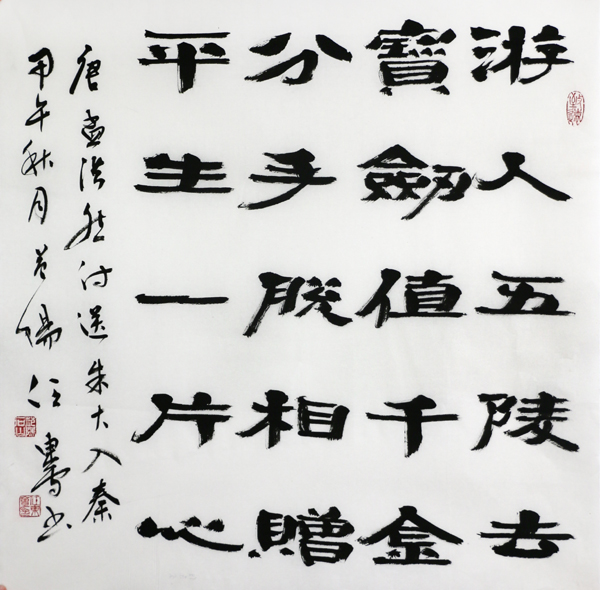 游人五陵去
寶劍值千金
分手脫相贈
平生一片心
唐孟浩然诗送朱大入秦
甲午秋月
书